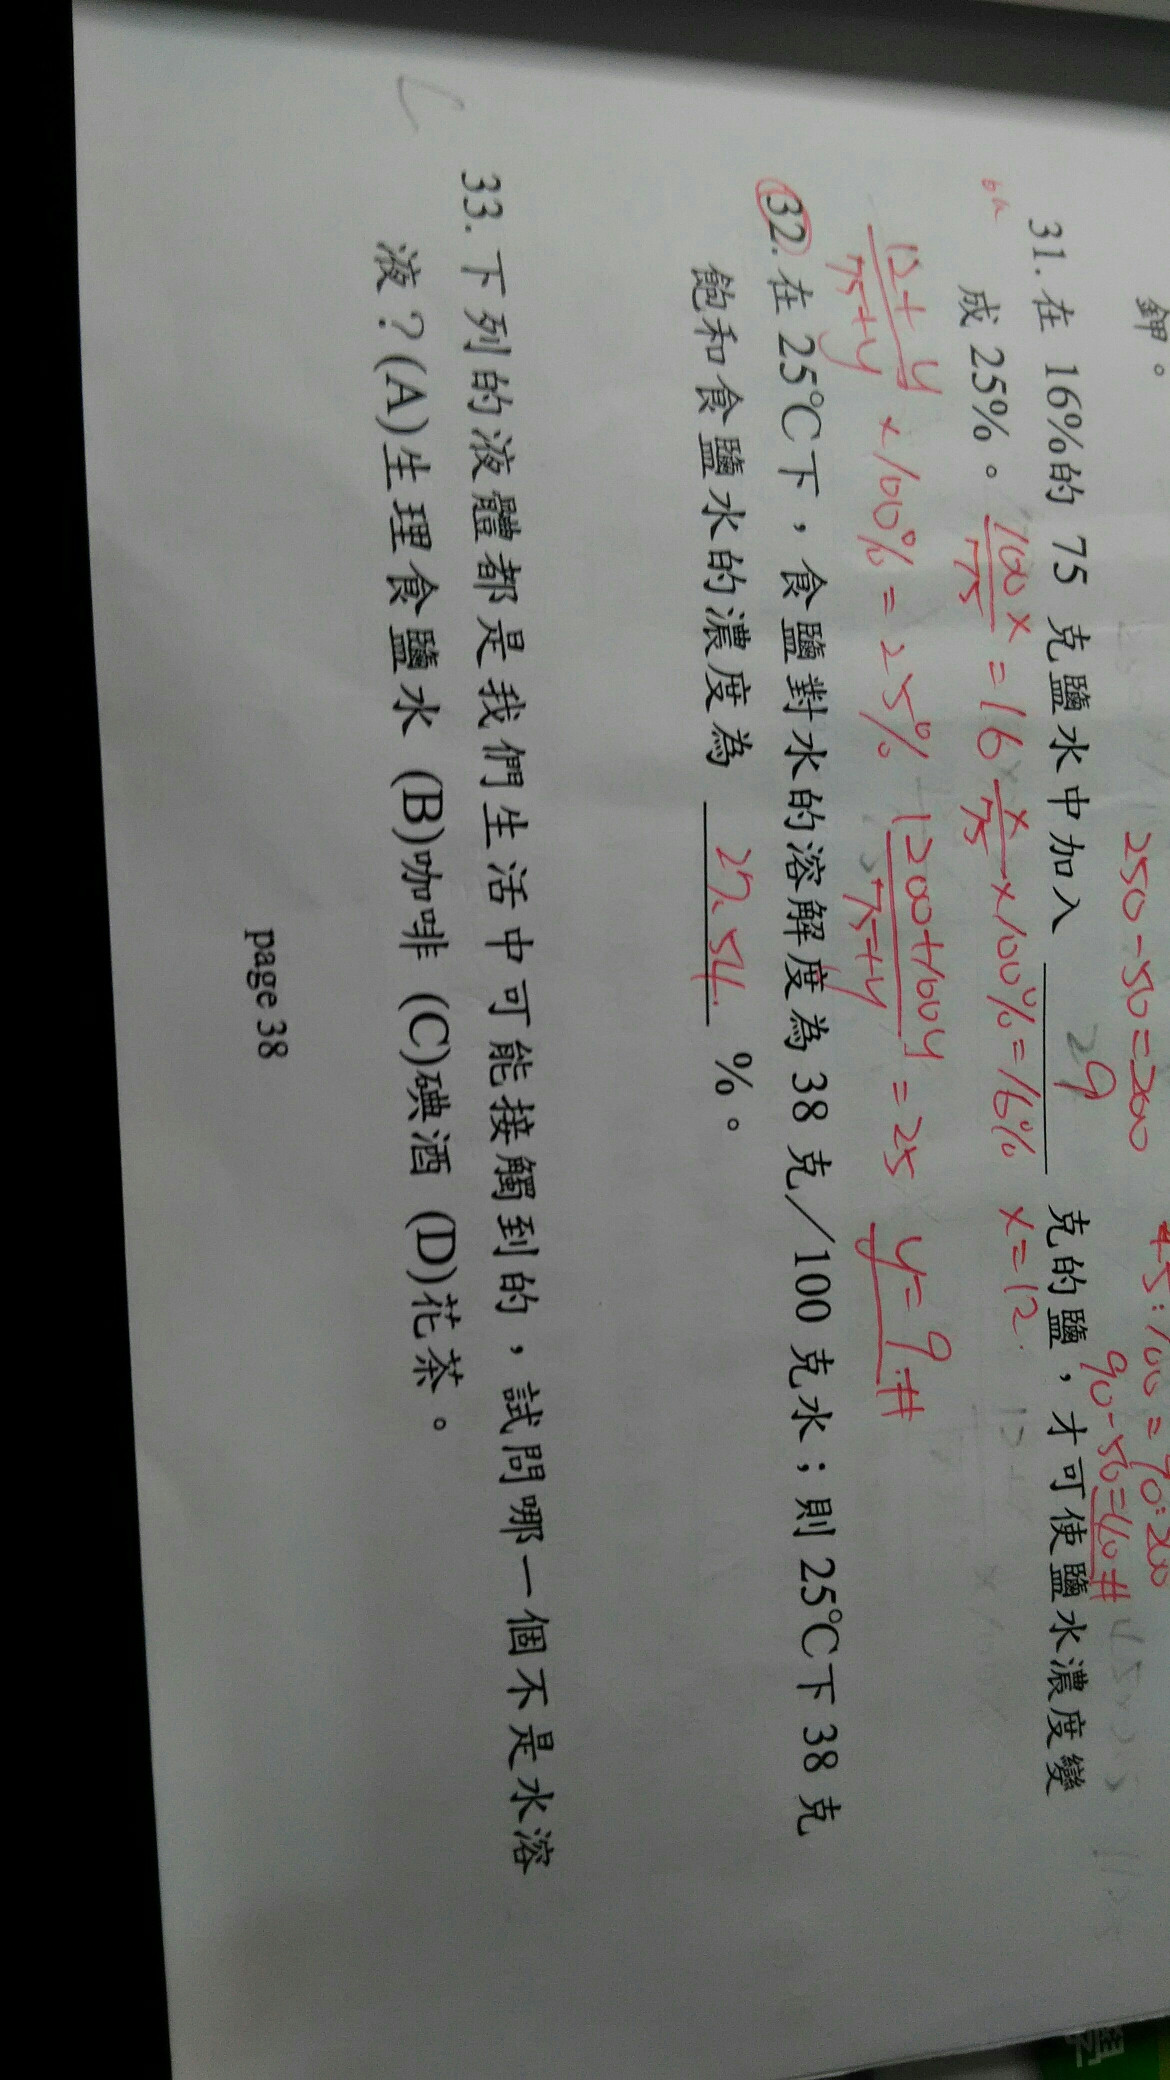 鉀。
250-50=200
45:100=90:200
90-50=40#
31.在 16%的 75 克鹽水中加入 29 克的鹽，才可使鹽水濃度變
成 25%。 100x/75 = 16 x/75 ×100%=16% x=12.
12+y/75+y ×100% = 25% 1200+100y/75+y = 25 y=9#
32.在 25℃下，食鹽對水的溶解度為 38 克／100 克水；則 25℃下 38 克
飽和食鹽水的濃度為 27.54 %。
33.下列的液體都是我們生活中可能接觸到的，試問哪一個不是水溶
液？(A)生理食鹽水 (B)咖啡 (C)碘酒 (D)花茶。
page 38